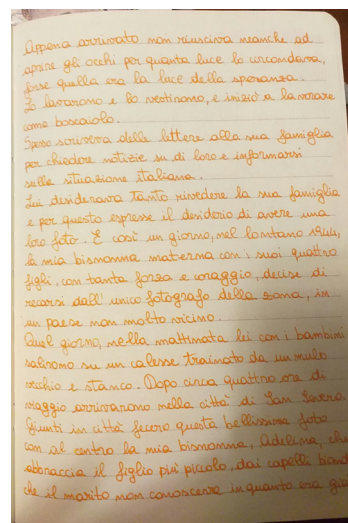 Appena arrivato non riusciva neanche ad
aprire gli occhi per quanta luce lo circondava,
forse quella era la luce della speranza.
Lo lavarono e lo vestirono, e iniziò a lavorare
come boscaiolo.
Spesso scriveva delle lettere alla sua famiglia
per chiedere notizie su di loro e informarsi
sulla situazione italiana.
Lui desiderava tanto rivedere la sua famiglia
e per questo espresse il desiderio di avere una
loro foto. È così un giorno, nel lontano 1944,
la mia bisnonna materna con i suoi quattro
figli, con tanta forza e coraggio, decise di
recarsi dall'unico fotografo della zona, in
un paese non molto vicino.
Quel giorno, nella mattinata lei con i bambini
salirono su un calesse trainato da un mulo
vecchio e stanco. Dopo circa quattro ore di
viaggio arrivarono nella città di San Severo.
Giunti in città fecero questa bellissima foto
con al centro la mia bisnonna, Adelina, che
abbraccia il figlio più piccolo, dai capelli biondi
che il marito non conosceva in quanto era già